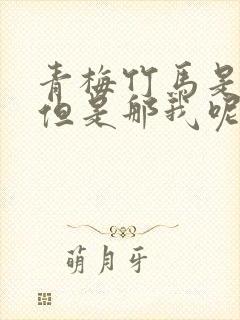 青梅竹马是
但是那我呢
萌月牙